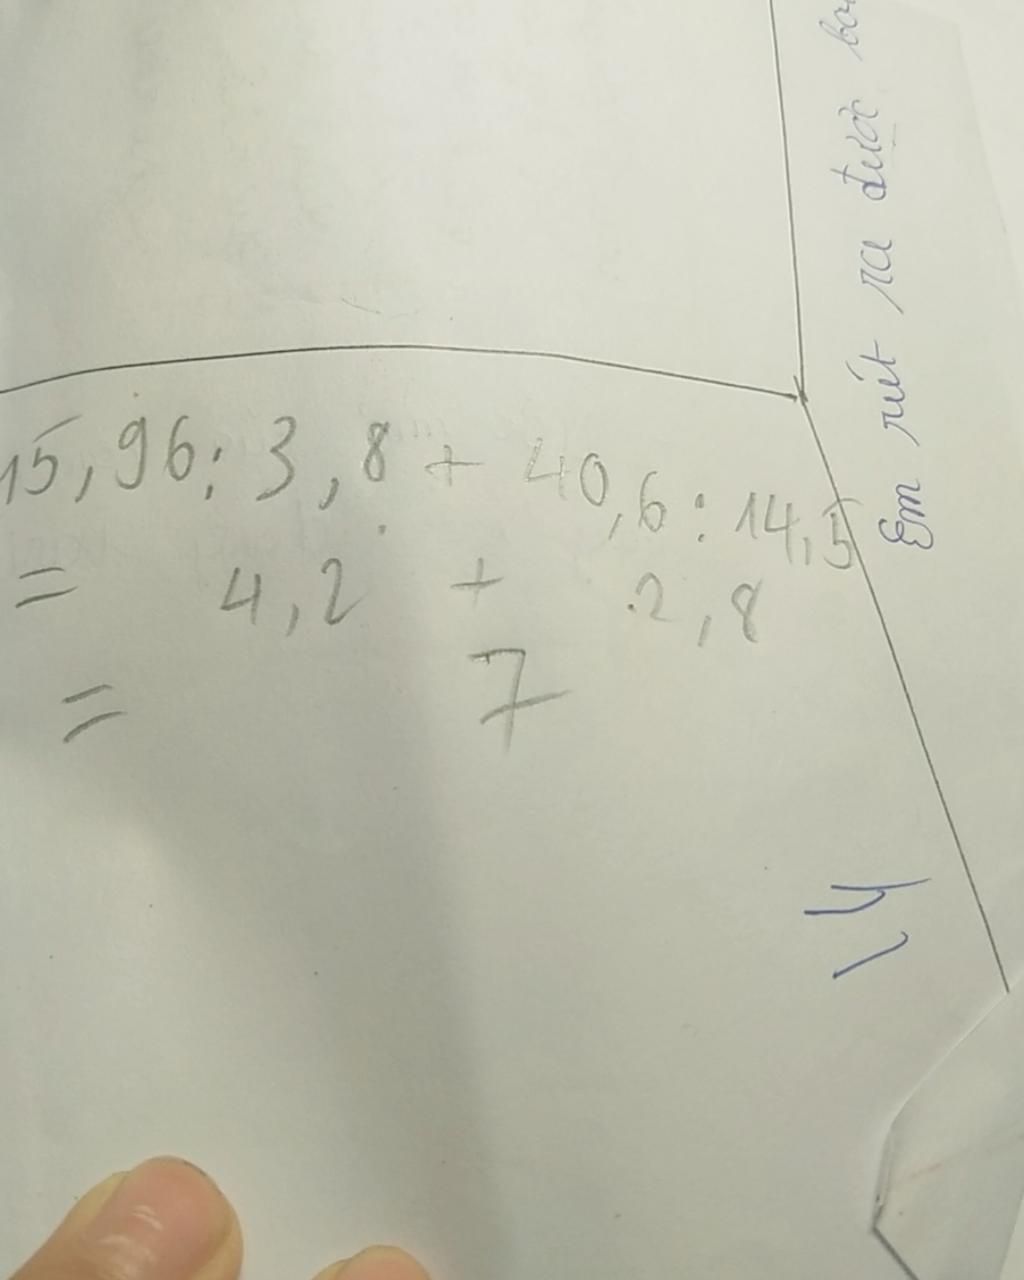 15,96 : 3,8 + 40,6 : 14,5
= 4,2 + 2,8
= 7
Em rút ra được
14